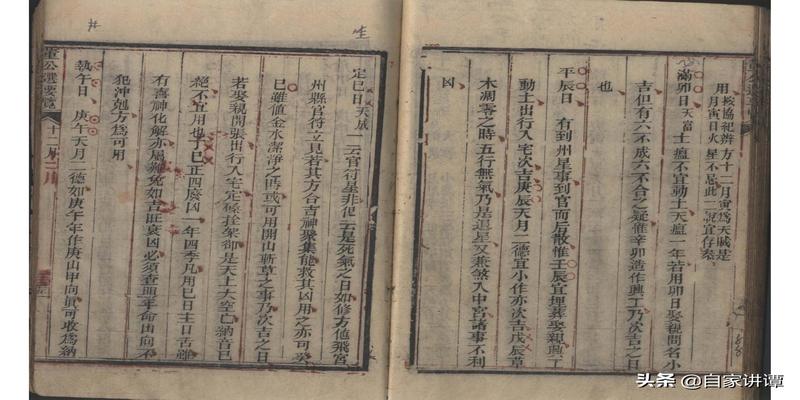 用 按協紀辨方十二月寅為天賊是
月寅日火星不忌此二說宜存參
滿卯日天富 土瘟不宜動土天瘟一年若用卯日娶親問名小
吉但有六不成六不合之疑惟辛卯造作興工乃次吉之日
也
平辰日 有到州星事到官而后散惟壬辰宜埋葬娶親興工
動土出行入宅次吉庚辰天月二德宜小作亦次吉戊辰草
木凋零之時五行無氣乃是退星又兼煞入中宮諸事不利
凶
定巳日天成 一云官符星非他云是死氣之日如修方他飛宮
州縣官符立見若其方合吉神聚集能救其凶用之亦可癸
巳雖值金水潔淨之時或可用開山斬草之事乃次吉之日
若娶親開張出行入宅定磉拴架卻是天上大空亡納音已
絕不宜用也丁巳正四廢凶一年四季凡用巳日主口舌雖
有喜神化解亦屬難免如吉旺衰凶必須查明年命由向不
犯沖剋方為可用
執午日 庚午天月二德如庚午年作庚山甲向眞可收為納
董公選要覽
十二月
生
头条 @自家讲谭